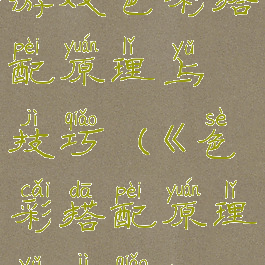 游戏色彩搭
pèi yuán lǐ yǔ
配原理与
jì qiǎo sè
技巧（《色
cǎi dā pèi yuán lǐ
彩搭配原理
yǔ jì qiǎo